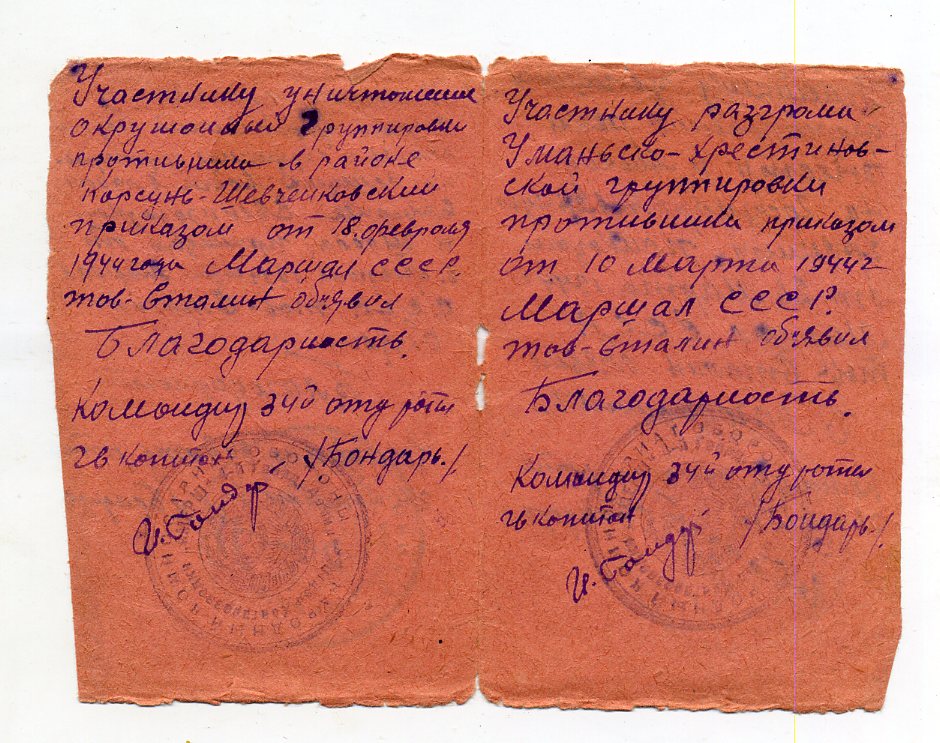 Участнику уничтожения
окружоный группировки
противника в районе
Корсунь-Шевченковский
приказом от 18. февроля
1944 года Маршал СССР.
тов. Сталин обявил
Благодарность.
Командир 34й оту роты
гв копитан /Бондарь./
И. Бондар
Участнику разгрома
Уманьско-Хрестинов-
ской группировки
противника приказом
от 10 Марта 1944г
Маршал СССР.
тов. Сталин обявил
Благодарность.
Командир 34й оту роты
гв копитан /Бондарь./
И. Бондар